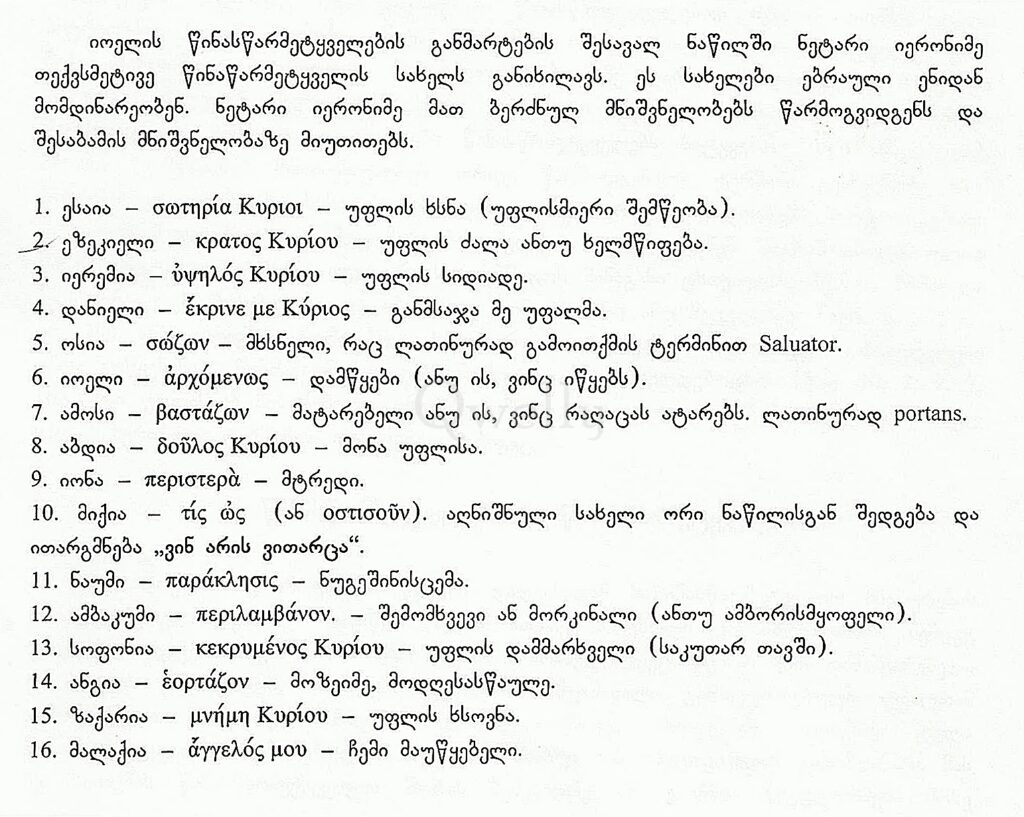 იოელის წინასწარმეტყველების განმარტების შესავალ ნაწილში ნეტარი იერონიმე
თექვსმეტივე წინაწარმეტყველის სახელს განიხილავს. ეს სახელები ებრაული ენიდან
მომდინარეობენ. ნეტარი იერონიმე მათ ბერძნულ მნიშვნელობებს წარმოგვიდგენს და
შესაბამის მნიშვნელობაზე მიუთითებს.
1. ესაია – σωτηρία Κυριοι – უფლის ხსნა (უფლისმიერი შემწეობა).
2. ეზეკიელი – κρατος Κυρίου – უფლის ძალა ანთუ ხელმწიფება.
3. იერემია – ὑψηλός Κυρίου – უფლის სიდიადე.
4. დანიელი – ἔκρινε με Κύριος – განმსაჯა მე უფალმა.
5. ოსია – σώζων – მხსნელი, რაც ლათინურად გამოითქმის ტერმინით Saluator.
6. იოელი – ἀρχόμενως – დამწყები (ანუ ის, ვინც იწყებს).
7. ამოსი – βαστάζων – მატარებელი ანუ ის, ვინც რაღაცას ატარებს. ლათინურად portans.
8. აბდია – δοῦλος Κυρίου – მონა უფლისა.
9. იონა – περιστερὰ – მტრედი.
10. მიქია – τίς ὡς (ან οστισοῦν). აღნიშნული სახელი ორი ნაწილისგან შედგება და
ითარგმნება „ვინ არის ვითარცა“.
11. ნაუმი – παράκλησις – ნუგეშინისცემა.
12. ამბაკუმი – περιλαμβάνον. – შემომხვევი ან მორკინალი (ანთუ ამბორისმყოფელი).
13. სოფონია – κεκρυμένος Κυρίου – უფლის დამმარხველი (საკუთარ თავში).
14. ანგია – ἑορτάζον – მოზეიმე, მოდღესასწაულე.
15. ზაქარია – μνήμη Κυρίου – უფლის ხსოვნა.
16. მალაქია – ἄγγελός μου – ჩემი მაუწყებელი.